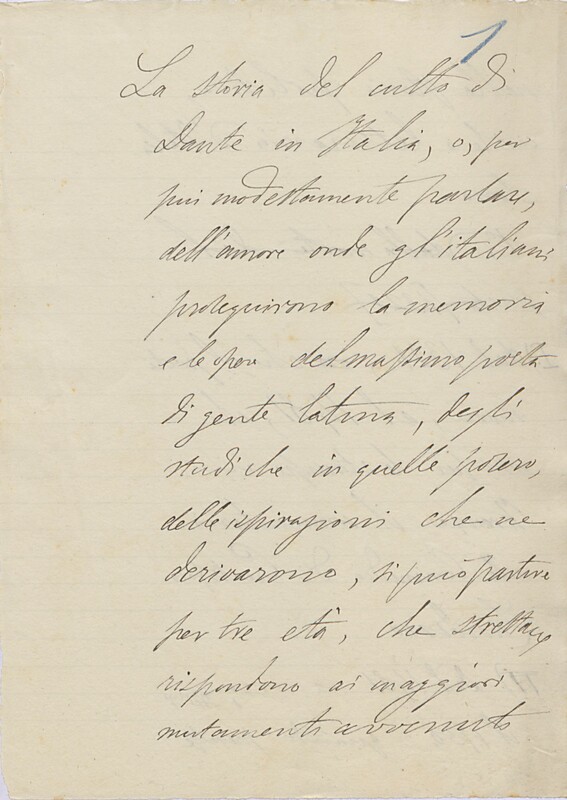 1
La storia del culto di
Dante in Italia, o, per
più modestamente parlare,
dell'amore onde gl'italiani
proseguirono la memoria
e le opere del massimo poeta
di gente latina, degli
studi che in quelle posero,
delle ispirazioni che ne
derivarono, si può partire
per tre età, che
rispondono ai maggiori
mutamenti avvenuti